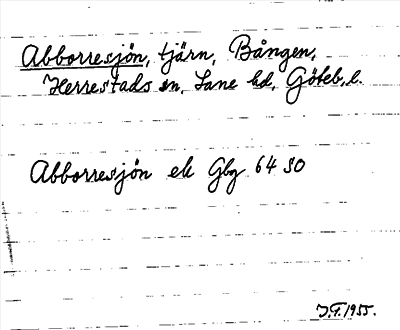 Abborresjön, tjärn, Bången,
Herrestads sn, Lane hd, Göteb. l.
Abborresjön ek Gbg 64 SO
J.F. 1955.